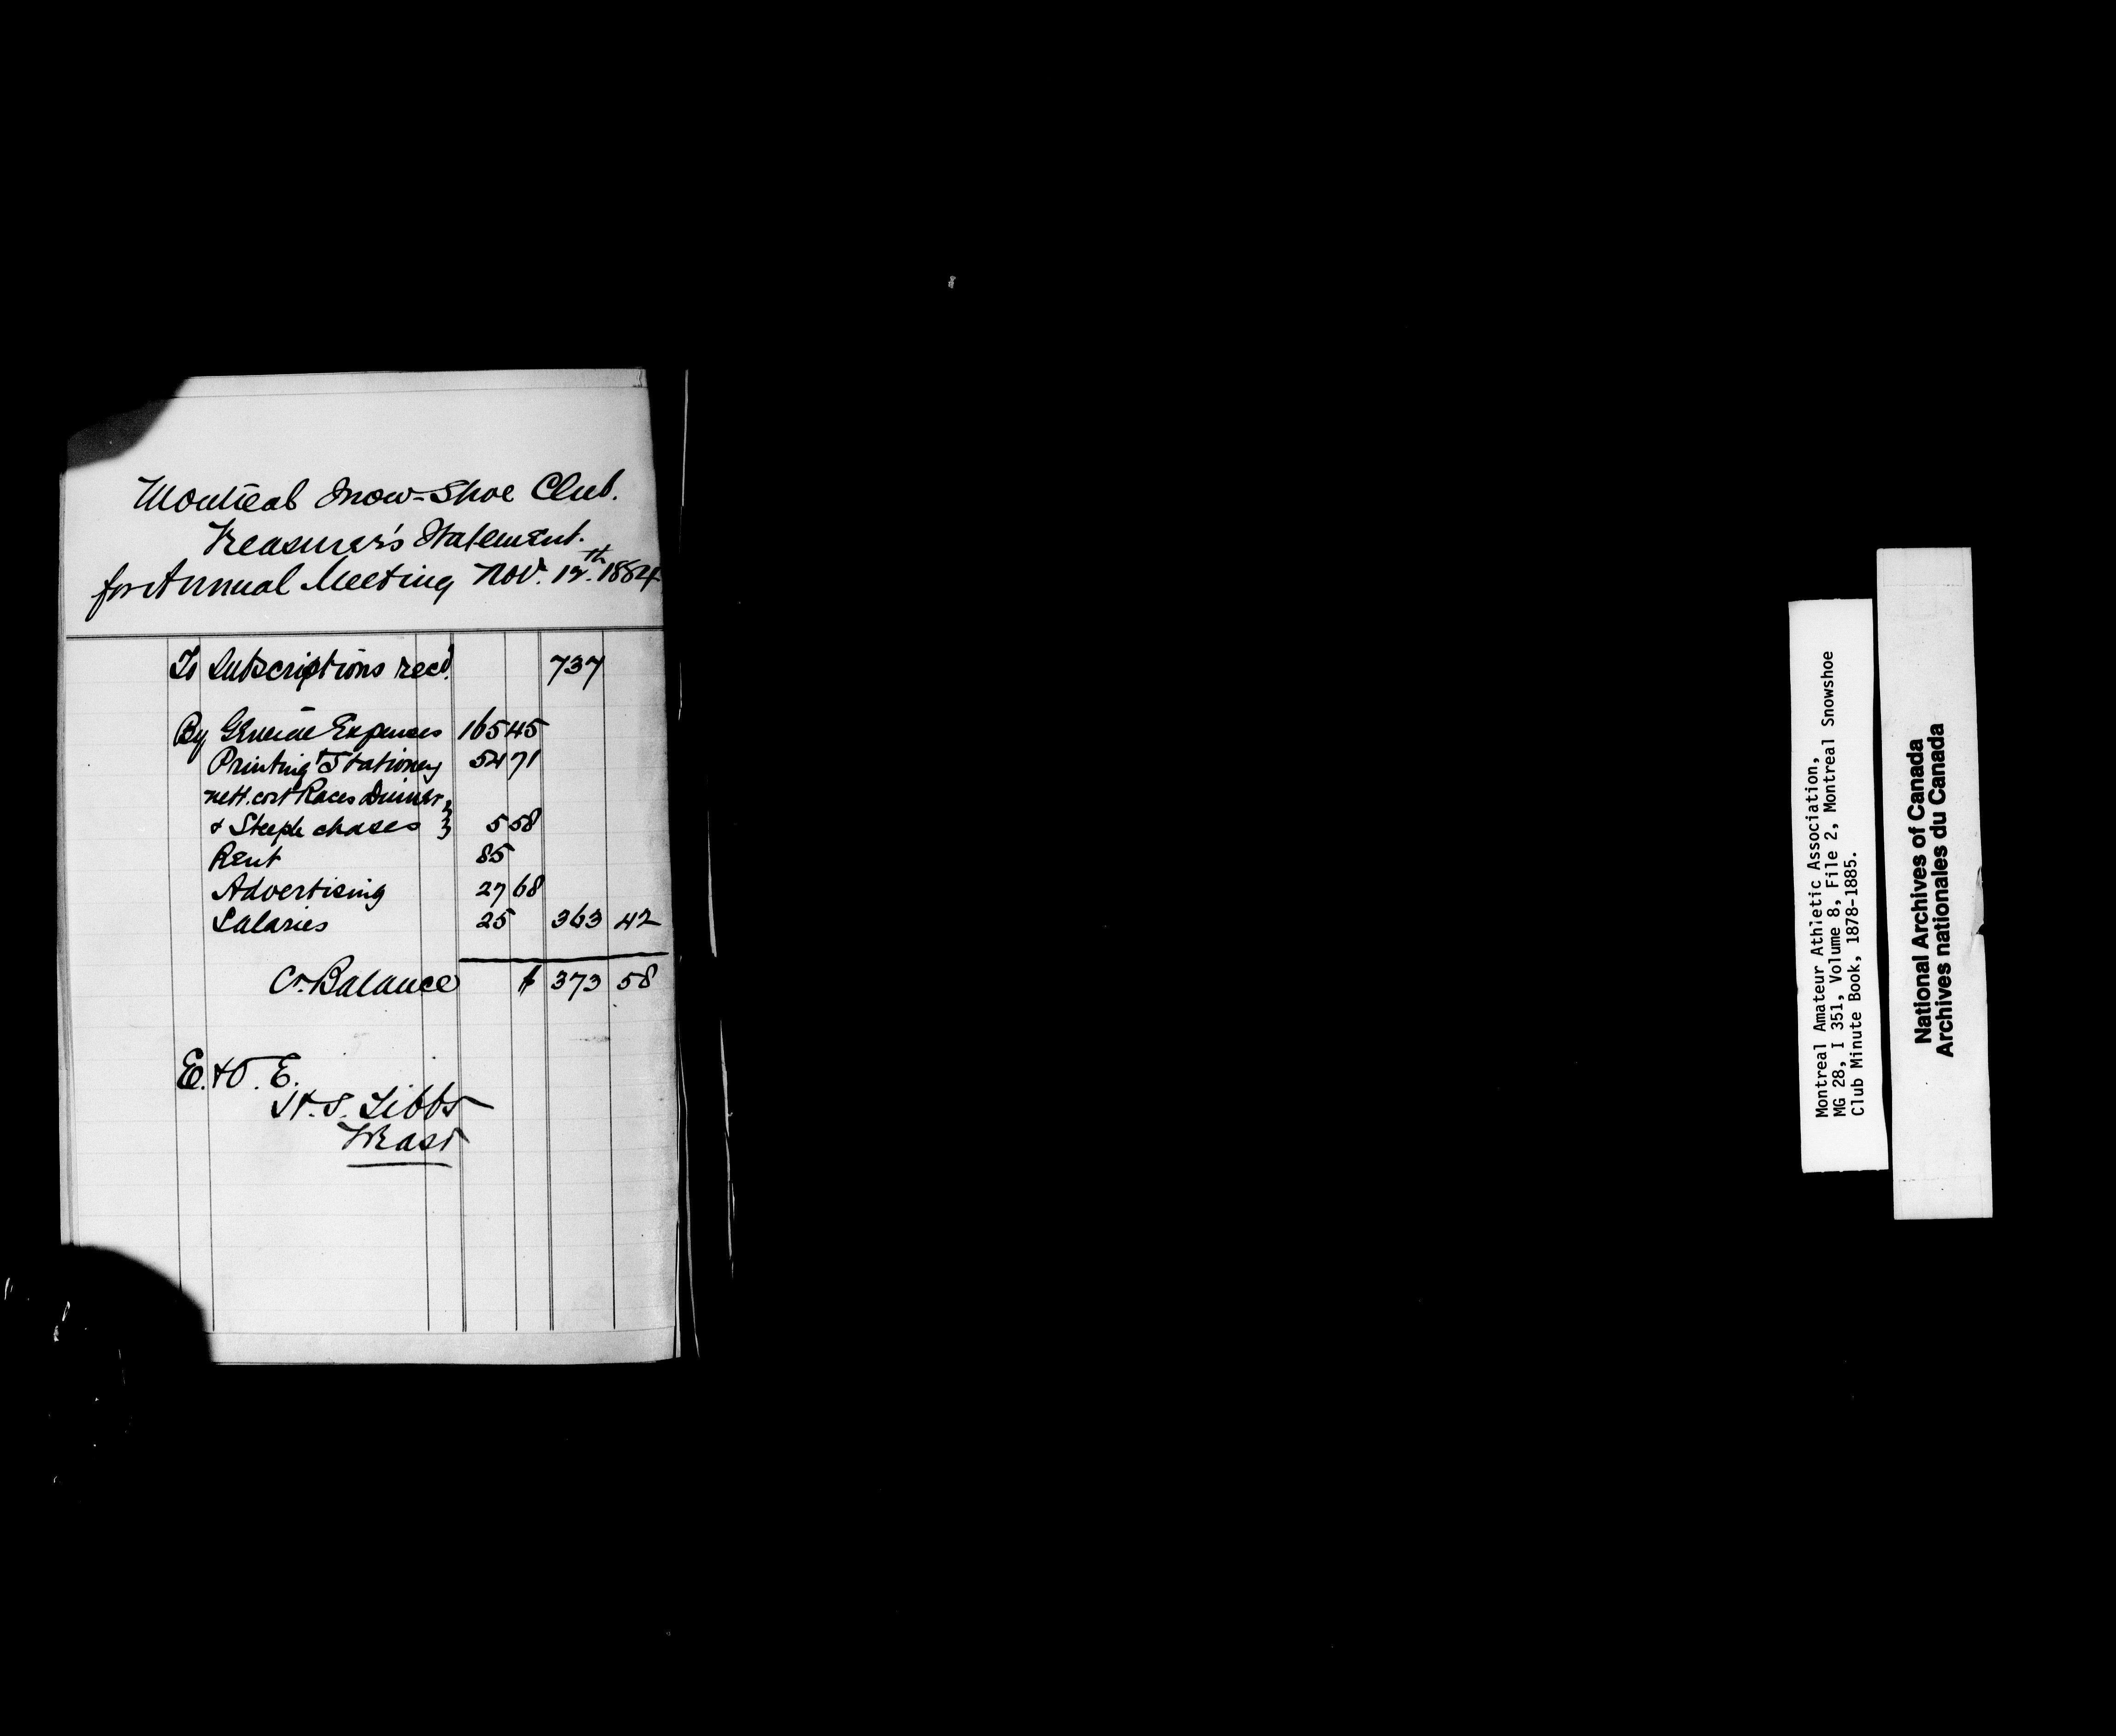 Montreal Snow-Shoe Club.
Treasurer's Statement.
for Annual Meeting Nov. 12th 1884
To Subscriptions rec'd. 737
By General Expenses 165 45
Printing & Stationery 54 71
nett. cost Races Dinner,
& Steeple chases } 5 58
Rent 85
Advertising 27 68
Salaries 25 363 42
Cr. Balance $ 373 58
E. & O. E.
Tibbs
Treasr
Montreal Amateur Athletic Association,
MG 28, I 351, Volume 8, File 2, Montreal Snowshoe
Club Minute Book, 1878-1885.
National Archives of Canada
Archives nationales du Canada